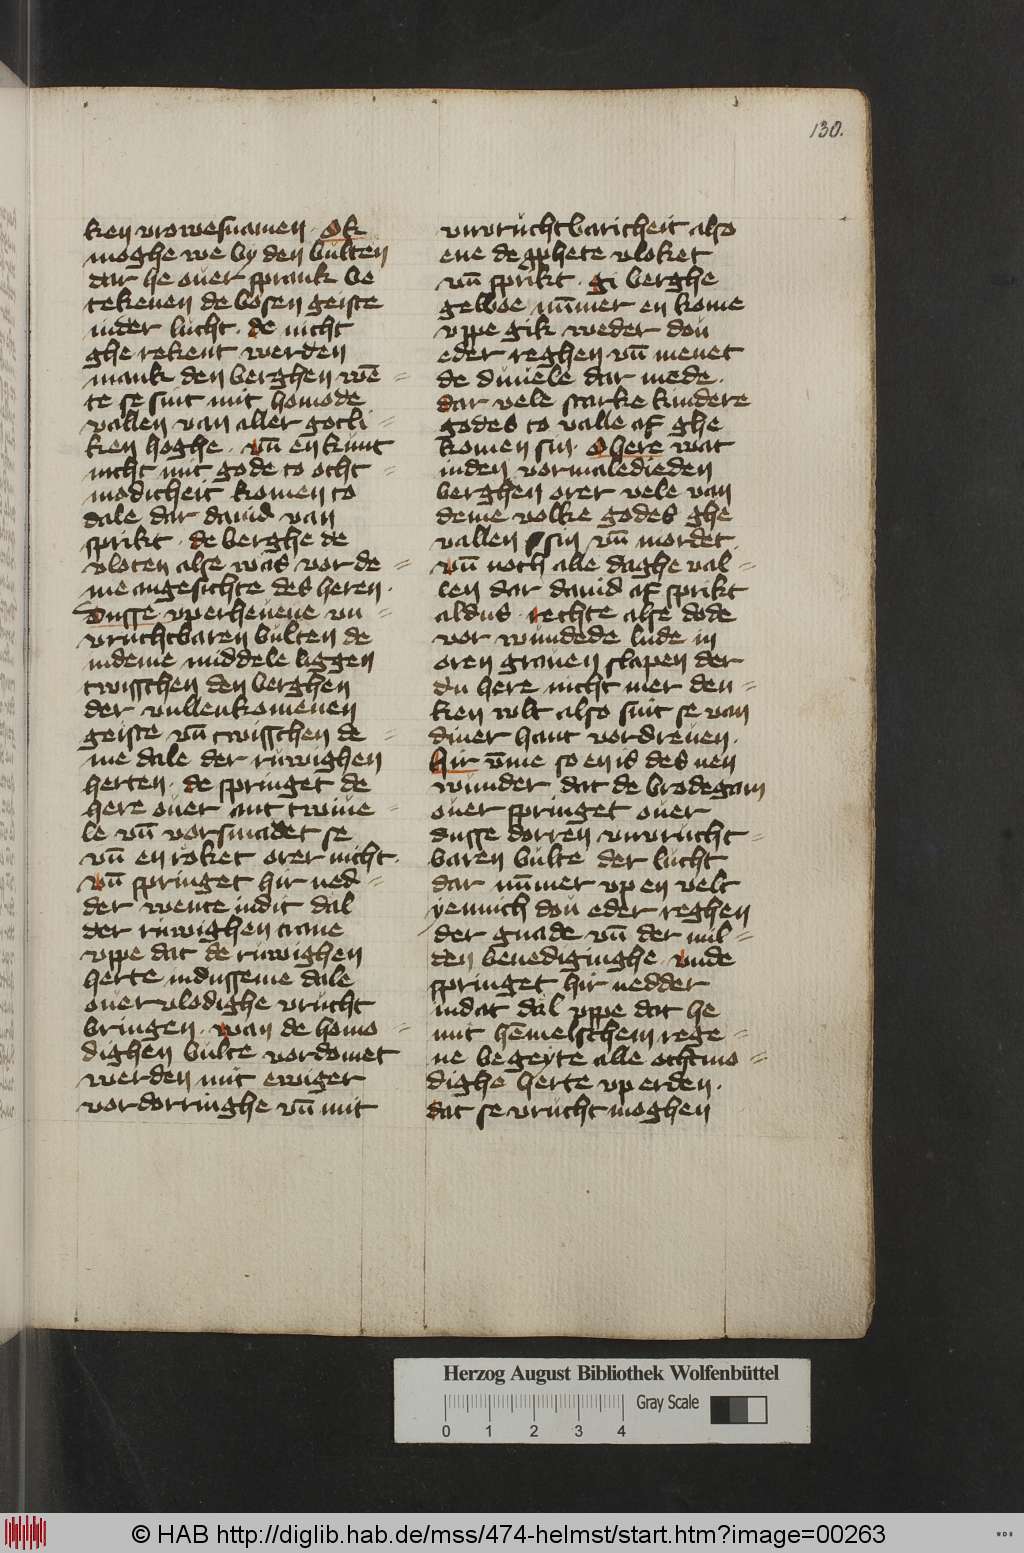 130.
ken vrowesnamen · Ok
moghe we by den bülten
dar he ouer sprank be
tekenen de bosen geiste
inder lücht · de nicht
ghe rekent werden
mank den berghen wē =
te se sint mit homode
vallen van aller gotli =
ken hoghe · vn̄ en kunt
nicht mit gode to otht =
modicheit komen to
dale dar dauid van
sprikt · de berghe de
vloten alse was vor de =
me angesichte des heren ·
Dusse vperheuene vn =
vrüchtbaren bülten de
indeme middele liggen
twisschen den berghen
der vullenkomenen
geiste vn̄ twisschen de =
me dale der rüwighen
herten · de springet de
here ouer ane twiue =
le vn̄ vorsmadet se
vn̄ en röket orer nicht ·
vn̄ springet hir ned =
der wente indit dal
der rüwighen
vppe dat de rüwighen
herte indusseme dale
ouer vlodighe vrücht
bringen · wan de homo =
dighen bülte vordomet
werden mit ewiger
vordorringhe vn̄ mit
vnvrüchtbaricheit also
ene de ꝓphete vloket
vn̄ sprikt · gi berghe
gelboe nūmer en kome
vppe gik weder dou
eder reghen vn̄ menet
de düuele dar mede ·
dar vele starke kindere
godes to valle af ghe
komen sin · O here wat
inden vormaledieden
berghen orer vele van
deme volke godes ghe
vallen sin vn̄ mordet
vn̄ noch alle daghe val =
len dar dauid af sprikt
aldus · rechte alse dode
vor wundede lude in
oren grauen slapen der
du here nicht mer den =
ken wlt also sint se van
diner hant vordreuen ·
Hir v̄me so en is des nen
wunder dat de brodegam
ouer springet ouer
dusse dorren vnvrücht =
baren bülte der lücht
dar nūmer vp en velt
yennich dou eder reghen
der gnade vn̄ der mil =
den benediginghe · vnde
springet hir nedder
indat dal vppe dat he
mit hēmelschem rege =
ne begeyte alle ochtmo =
dighe herte vp erden ·
dat se vrücht moghen
Herzog August Bibliothek Wolfenbüttel
Gray Scale
0 1 2 3 4
© HAB http://diglib.hab.de/mss/474-helmst/start.htm?image=00263